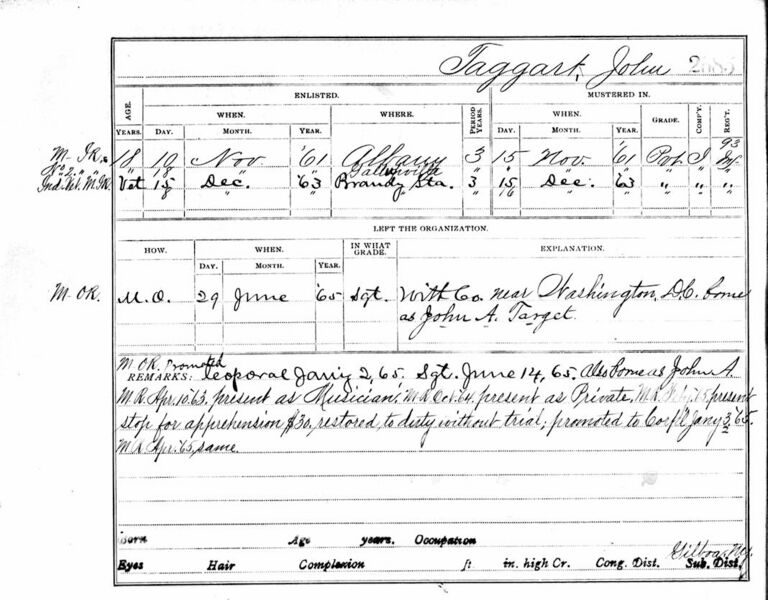 Taggart, John 2685
ENLISTED. MUSTERED IN.
AGE. WHEN. WHERE. PERIOD YEARS. WHEN. GRADE. COMP'Y. REG'T.
YEARS. DAY. MONTH. YEAR. DAY. MONTH. YEAR.
93
M-IR. 18 19 Nov '61 Albany 3 15 Nov. '61 Pvt I Inf.
No 2 " " " 8 " " Gallupville " " " " " " "
Ind. Vet. M.IR. Vet 15 Dec. '63 Brandy Sta. 3 15 Dec. '63 " " "
16
LEFT THE ORGANIZATION.
HOW. WHEN. IN WHAT GRADE. EXPLANATION.
DAY. MONTH. YEAR.
M-OR. M.O. 29 June '65 Sgt. With Co. near Washington, D.C. borne
as John A. Target
M-OR. Promoted
REMARKS: Corporal Jan'y 2, 65. Sgt. June 14, 65. Also borne as John A.
M.R. Apr. 10 '63, present as Musician; M.R. Oct. '64, present as Private, M.R. Feb. '65, present
stop for apprehension $30, restored to duty without trial; promoted to Corp'l Jany 3, '65.
M.R. Apr. '65, same.
Born Age years. Occupation
Gilboa, N.Y.
Eyes Hair Complexion ft in. high Cr. Cong. Dist. Sub. Dist.